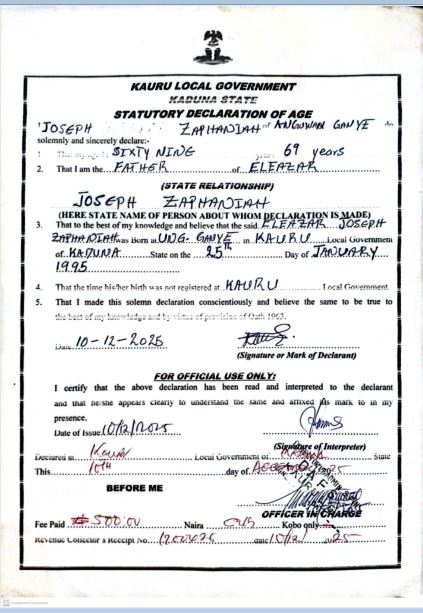 KAURU LOCAL GOVERNMENT
KADUNA STATE
STATUTORY DECLARATION OF AGE
I JOSEPH ZAPHANIAH of ANGUWAN GANYE do
solemnly and sincerely declare:-
1 That my age is SIXTY NINE years 69 years
2. That I am the FATHER of ELEAZAR
(STATE RELATIONSHIP)
JOSEPH ZAPHANIAH
(HERE STATE NAME OF PERSON ABOUT WHOM DECLARATION IS MADE)
3. That to the best of my knowledge and believe that the said ELEAZAR JOSEPH
ZAPHANIAH was Born at UNG- GANYE in KAURU Local Government
of KADUNA State on the 25th Day of JANUARY
1995
4. That the time his/her birth was not registered at KAURU Local Government
5. That I made this solemn declaration conscientiously and believe the same to be true to
the best of my knowledge and by virtue of provision of Oath 1963.
Date 10-12-2025
(Signature or Mark of Declarant)
FOR OFFICIAL USE ONLY:
I certify that the above declaration has been read and interpreted to the declarant
and that he/she appears clearly to understand the same and affixed his mark to in my
presence.
Date of Issue 10/12/2025
(Signature of Interpreter)
Declared at Kauru Local Government of State
This 10th day of 25
BEFORE ME
OFFICER IN CHARGE
Fee Paid ₦500.00 Naira Kobo only
Revenue Collector's Receipt No. date 10/12/ 25